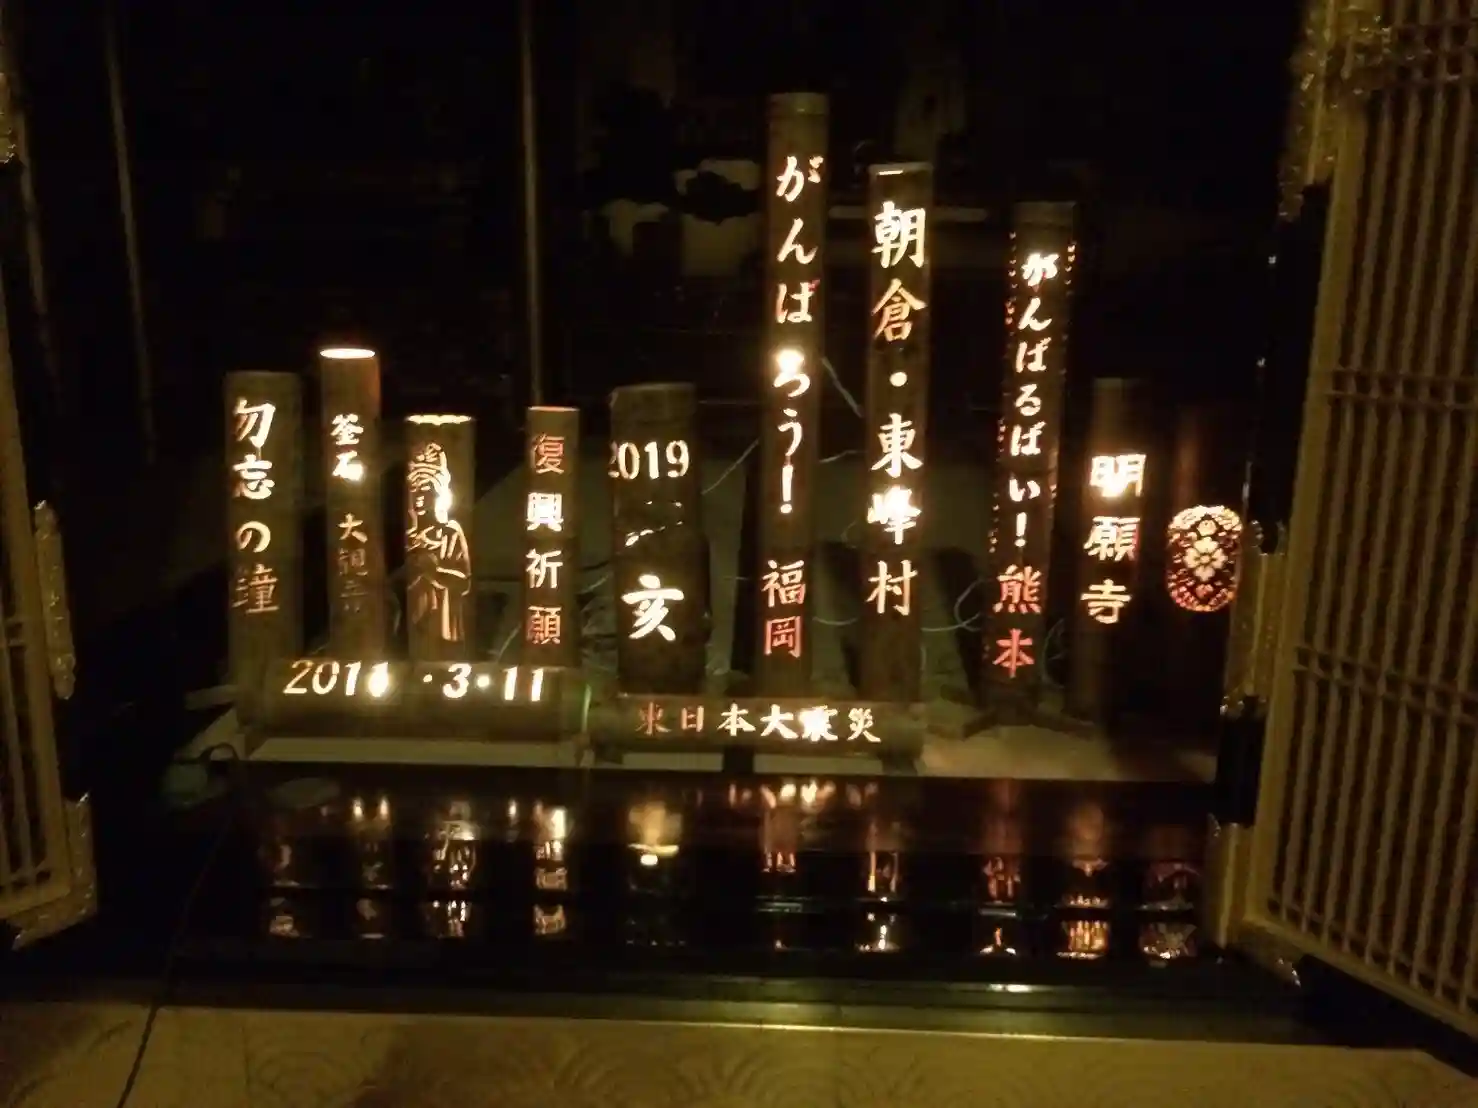 勿忘の鐘
釜石
大観音
復興祈願
2019
亥
がんばろう!福岡
朝倉・東峰村
がんばるばい!熊本
明願寺
2011・3・11
東日本大震災